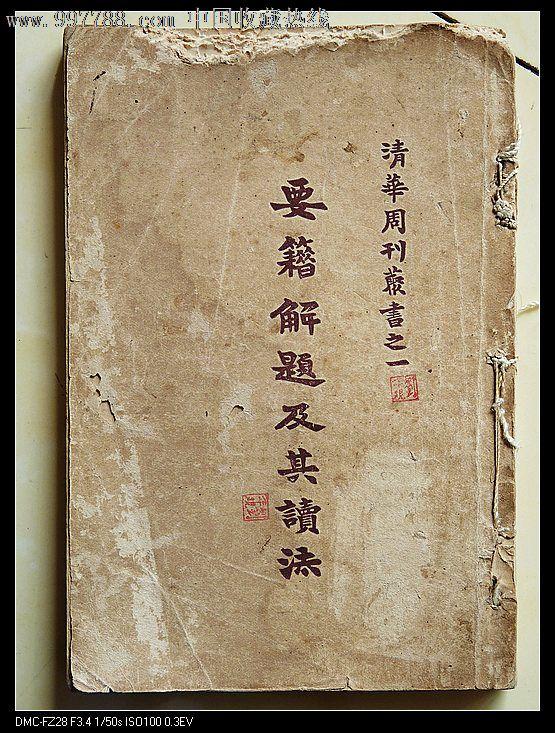 www.997788.com 中国收藏热线
清華周刊叢書之一
要籍解題及其讀法
DMC-FZ28 F3.4 1/50s ISO100 0.3EV